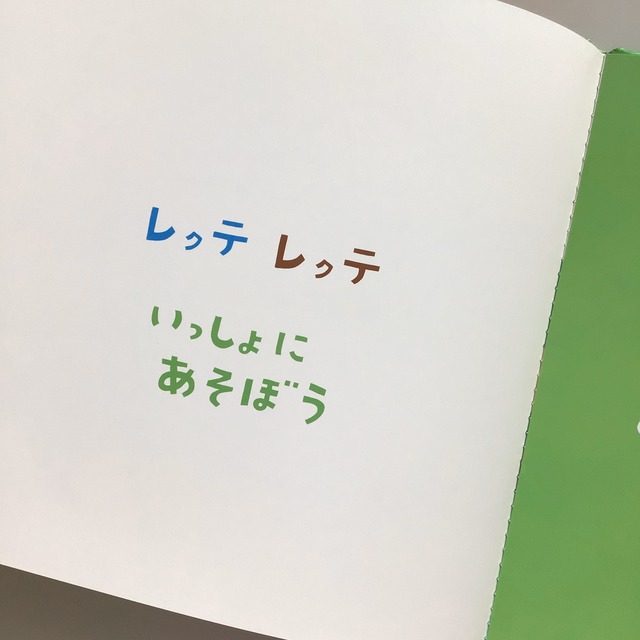 レクテ レクテ
いっしょに
あそぼう